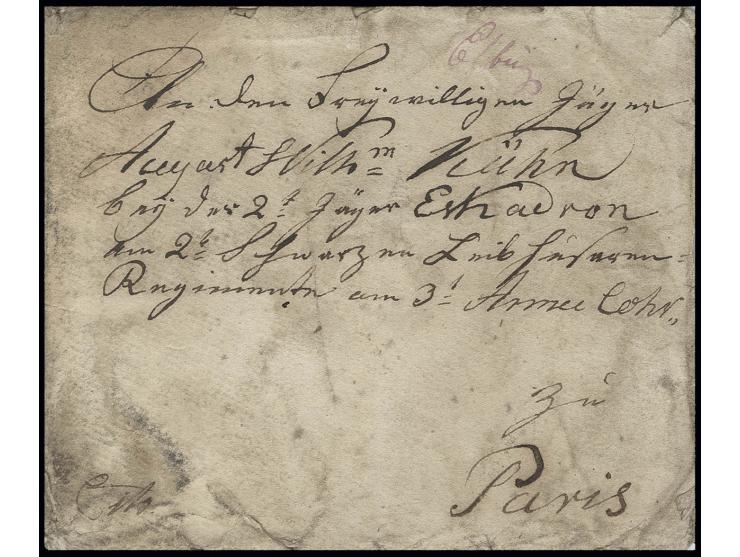 Elbing
An den Freywilligen Jäger
August Wilh<u>m</u> Kühn
bey des 2t. Jäger Eskadron
am 2t. Schwarzen Leib Husaren=
Regimente am 3t. Armee Cohr„
zu
Paris